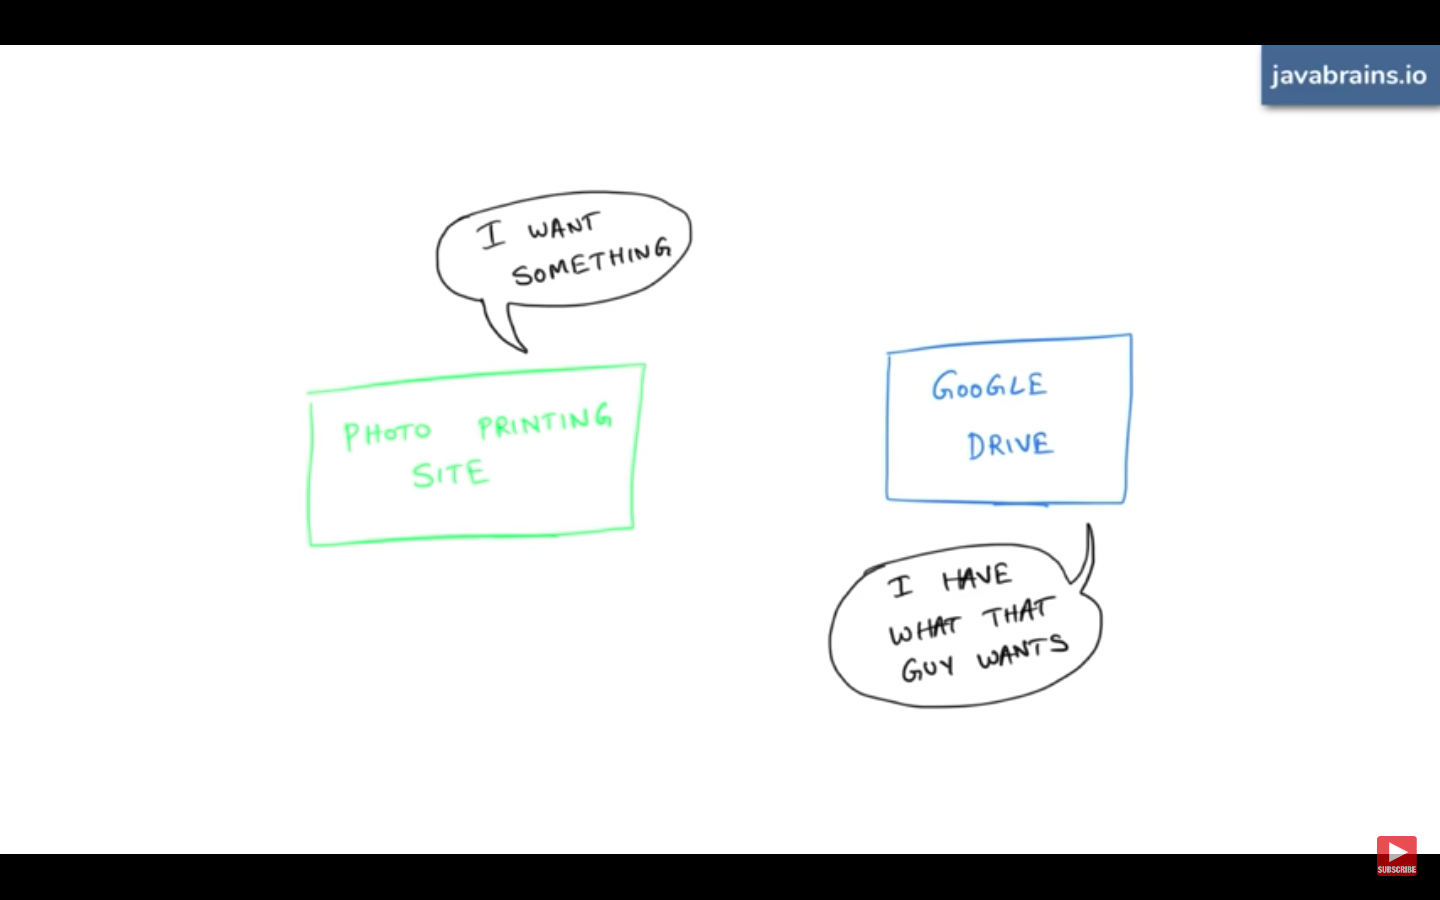 javabrains.io
I WANT
SOMETHING
PHOTO PRINTING
SITE
GOOGLE
DRIVE
I HAVE
WHAT THAT
GUY WANTS
SUBSCRIBE